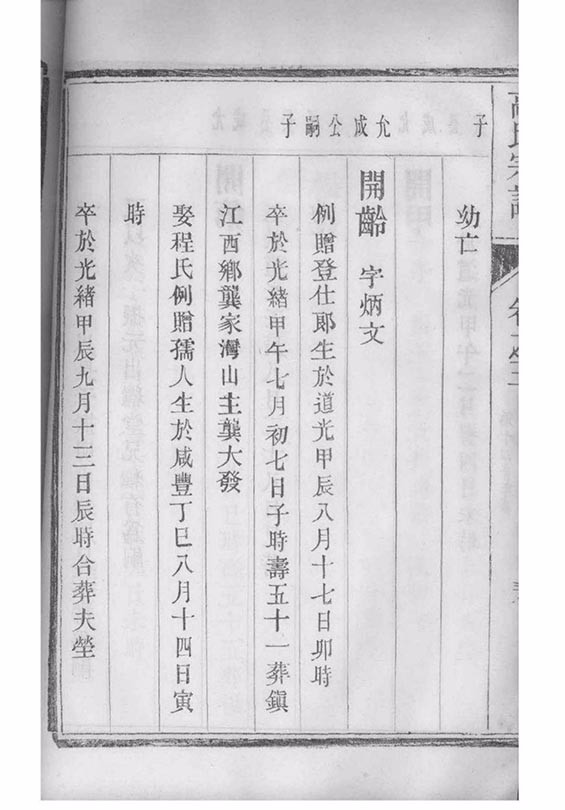 高氏宗譜
子
幼亡
允成公嗣子
開齡 字炳文
例贈登仕郎生於道光甲辰八月十七日卯時
卒於光緒甲午七月初七日子時壽五十一葬鎭
江西鄉龔家灣山主龔大發
娶程氏例贈孺人生於咸豐丁巳八月十四日寅
時
卒於光緒甲辰九月十三日辰時合葬夫塋